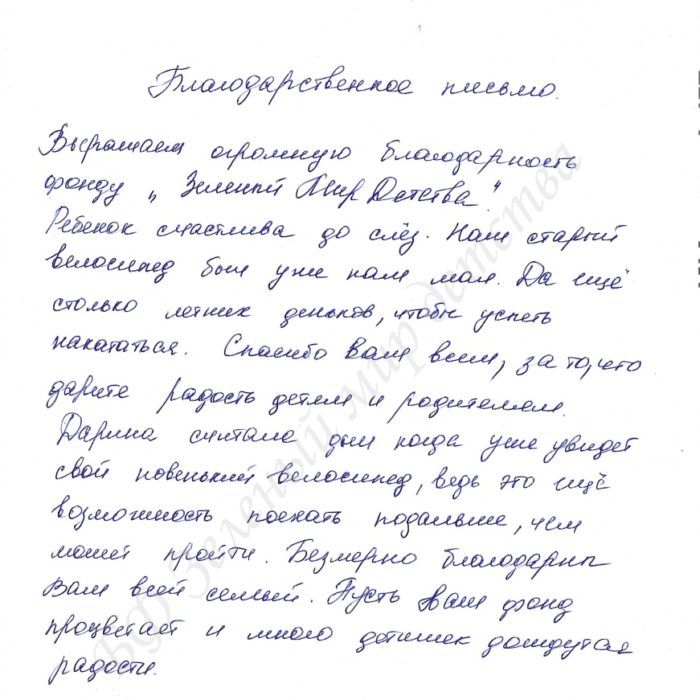 Благодарственное письмо.
Выражаем огромную благодарность
фонду „Зеленый Мир Детства".
Ребенок счастлива до слёз. Наш старый
велосипед был уже нам мал. Да ещё
столько летних деньков, чтобы успеть
накататься. Спасибо Вам всем, за то, что
дарите радость детям и родителям.
Дарина считала дни когда уже увидет
свой новенький велосипед, ведь это ещё
возможность поехать подальше, чем
может пройти. Безмерно благодарны
Вам всей семьёй. Пусть Ваш фонд
процветает и много детишек дождутся
радости.
БФ Зеленый мир детства